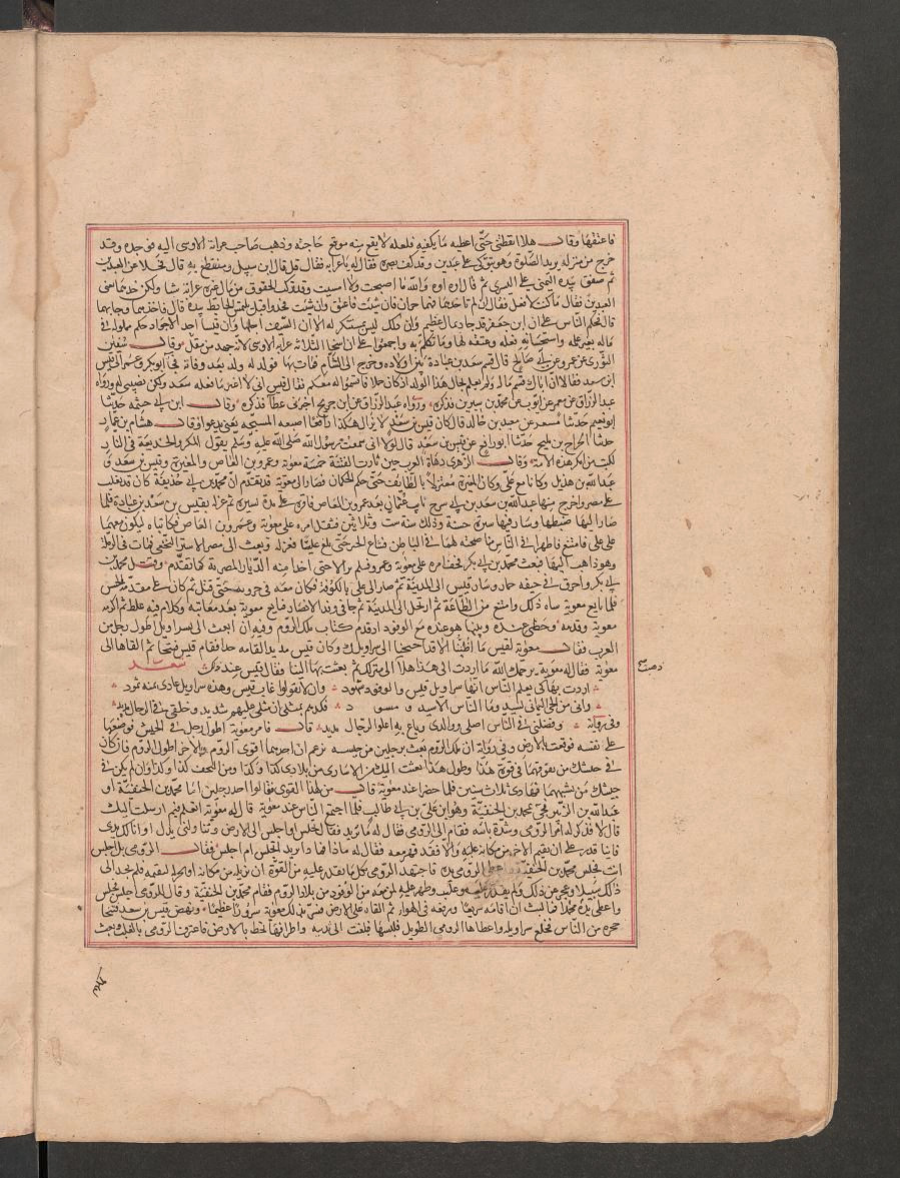 فاعتقها وقال هلا ايقظتني حتى اعطيه ما يكفيه فلعله لا يقع منه موقع حاجته وذهب صاحب عرابة الاوسى اليه فوجده وقد
خرج من منزله يريد الصلوة وهو يتوكى على عبدين وقد كف بصره فقال له يا عرابه فقال قل قال ابن سبيل ومنقطع به قال فخلا عن العبدين
ثم صفق بيده اليمنى على اليسرى ثم قال اوه اوه والله ما اصبحت ولا امسيت وقد تركت الحقوق من مال عرابة شيا ولكن خذهما يعنى
العبدين فقال ما كنت لافعل فقال ان لم تاخذهما فهما حران فان شئت فاعتق وان شئت فخذ واقبل يلتمس الحايط بيده قال فاخذهما وجا بهما
قال فحكم الناس على ان ابن جعفر قد جاد بمال عظيم وان ذلك ليس بمستنكر له الا ان السيف اجلها وان قيسا احد الاجواد حكم مملوكته في
ماله بغير علمه واستحسانه فعله وعتقه لها وما تكلم به واجمعوا على ان اسخا الثلاثه عرابة الاوسى لانه جهد من مقل وقال سفين
الثورى عن عمرو عن ابى صالح قال قسم سعد بن عبادة ماله بين اولاده وخرج الى الشام فمات بها فولد له ولد بعد وفاته فجا ابو بكر وعمر الى قيس
ابن سعد فقالا ان اباك قسم ماله ولم يعلم بحال هذا الولد اذ كان حملا فاقسموا له معكم فقال قيس انى لا اغير ما فعله سعد ولكن نصيبى له ورواه
عبد الرزاق عن معمر عن ايوب عن محمد بن سيرين فذكره ورواه عبد الرزاق عن ابن جريج اخبرنى عطا فذكره وقال ابن ابى خيثمه حدثنا
ابو نعيم حدثنا مسعر عن معبد بن خالد قال كان قيس بن سعد لا يزال هكذا رافعا اصبعه المسبحه يعنى يدعو وقال هشام بن عمار
حدثنا الجراح بن مليح حدثنا ابو رافع عن قيس بن سعد قال لولا انى سمعت رسول الله صلى الله عليه وسلم يقول المكر والخديعة في النار
لكنت من امكر هذه الامة وقال الزهرى دهاة العرب حين ثارت الفتنة خمسة معوية وعمرو بن العاص والمغيرة وقيس بن سعد و
عبد الله بن بديل وكانا مع على وكان المغيرة معتزلا بالطائف حتى حكم الحكمان فصارا الى معوية قد تقدم ان محمد بن ابى حذيفة كان قد تغلب
على مصر واخرج منها عبد الله بن سعد بن ابى سرح نايب عثمان بعد عمرو بن العاص فاقره على مدة يسيرة ثم عزله بقيس بن سعد بن عبادة فلما
على على فامتنع فاظهرا في الناس
وهو ذاهب اليها فبعث محمد بن ابى بكر فخف امره على معوية وعمرو فلم يزالا حتى اخذا منه الديار المصرية كما تقدم وقتل محمد بن
ابى بكر واحرق في جيفة حمار وسار قيس الى المدينة ثم صار الى على بالكوفة فكان معه في حروبه حتى قتل ثم كان على مقدمة الحسن
فلما بايع معوية ساه ذلك وامتنع من الطاعة ثم ارتحل الى المدينة ثم جا في وفد الانصار فبايع معوية بعد معاتبة وكلام فيه غلظ ثم اكرمه
معوية وقدمه وحظى عنده وبينما هو عنده مع الوفود اذ قدم كتاب ملك الروم وفيه ان ابعث الى بسراويل اطول رجل من
العرب فقال معوية لقيس ما ارانا الا قد احتجنا الى سراويلك وكان قيس مديد القامه جدا فقام قيس فتنحا ثم القاها الى
معوية فقال له معوية يرحمك الله ما اردت الى هذا هلا الى منزلك ثم بعثت بها الينا وقال قيس عند ذلك سعد
اردت بها كى يعلم الناس انها سراويل قيس والوفود شهود وان لا يقولوا غاب قيس وهذه سراويل عادى نمته ثمود
وانى من الحى اليمانى لسيد وما الناس الا سيد و مسود فكدهم بمثلى ان مثلى عليهم شديد وخلقى في الرجال مديد
وفى رواية وفضلنى في الناس اصلى ووالدى وباع به اعلو الرجال مديد قال فامر معوية اطول رجل في الجيش فوضعها
على نفسه فوقعت بالارض وفى رواية ان ملك الروم بعث برجلين من جيشه يزعم ان احدهما اقوى الروم والاخر اطول الروم فان كان
في جيشك من يفوقهما في قوة هذا وطول هذا بعثت اليك من الاسارى من بلادى كذا وكذا ومن التحف كذا وكذا وان لم يكن في
جيشك من يشبههما فهادنى ثلاث سنين فلما حضرا عند معوية قال من لهذا القوى فقالوا احد رجلين اما محمد بن الحنفية او
عبد الله بن الزبير فجئ بمحمد بن الحنفية وهو ابن على بن ابى طالب فلما اجتمع الناس عند معوية قال له معوية اتعلم فيم ارسلت اليك
قال لا فذكر له امر الرومى وشدة باسه فقام الى الرومى فقال له ما تريد فقال تجلس او اجلس الى الارض وتناولنى يدك او اناولك يدى
فاينا قدر على ان يقيم الاخر من مكانه غلبه والا فقد قهر معه فقال له ماذا تريد تجلس ام اجلس فقال الرومى بل اجلس
انت فجلس محمد بن الحنفية واعطى الرومى يده فاجتهد الرومى بكل ما يقدر عليه من القوة ان يزيله من مكانه او يحركه ليقيمه فلم يجد الى
ذلك سبيلا وعجز عن ذلك ولم يقدر عليه وغلب وظهر عليه لمن معه من الوفود من بلاد الروم فقام محمد بن الحنفية وقال للرومى اجلس فجلس
واعطى يده محمدا فما لبث ان اقامه سريعا ورفعه في الهوا ثم القاه على الارض فسر بذلك معوية سرورا عظيما ونهض قيس بن سعد فتنحا
عن الناس فخلع سراويله واعطاها الرومى الطويل فلبسها فبلغت الى ثدييه واطرافها تخط بالارض فاعترف الرومى بالغلب وبعث